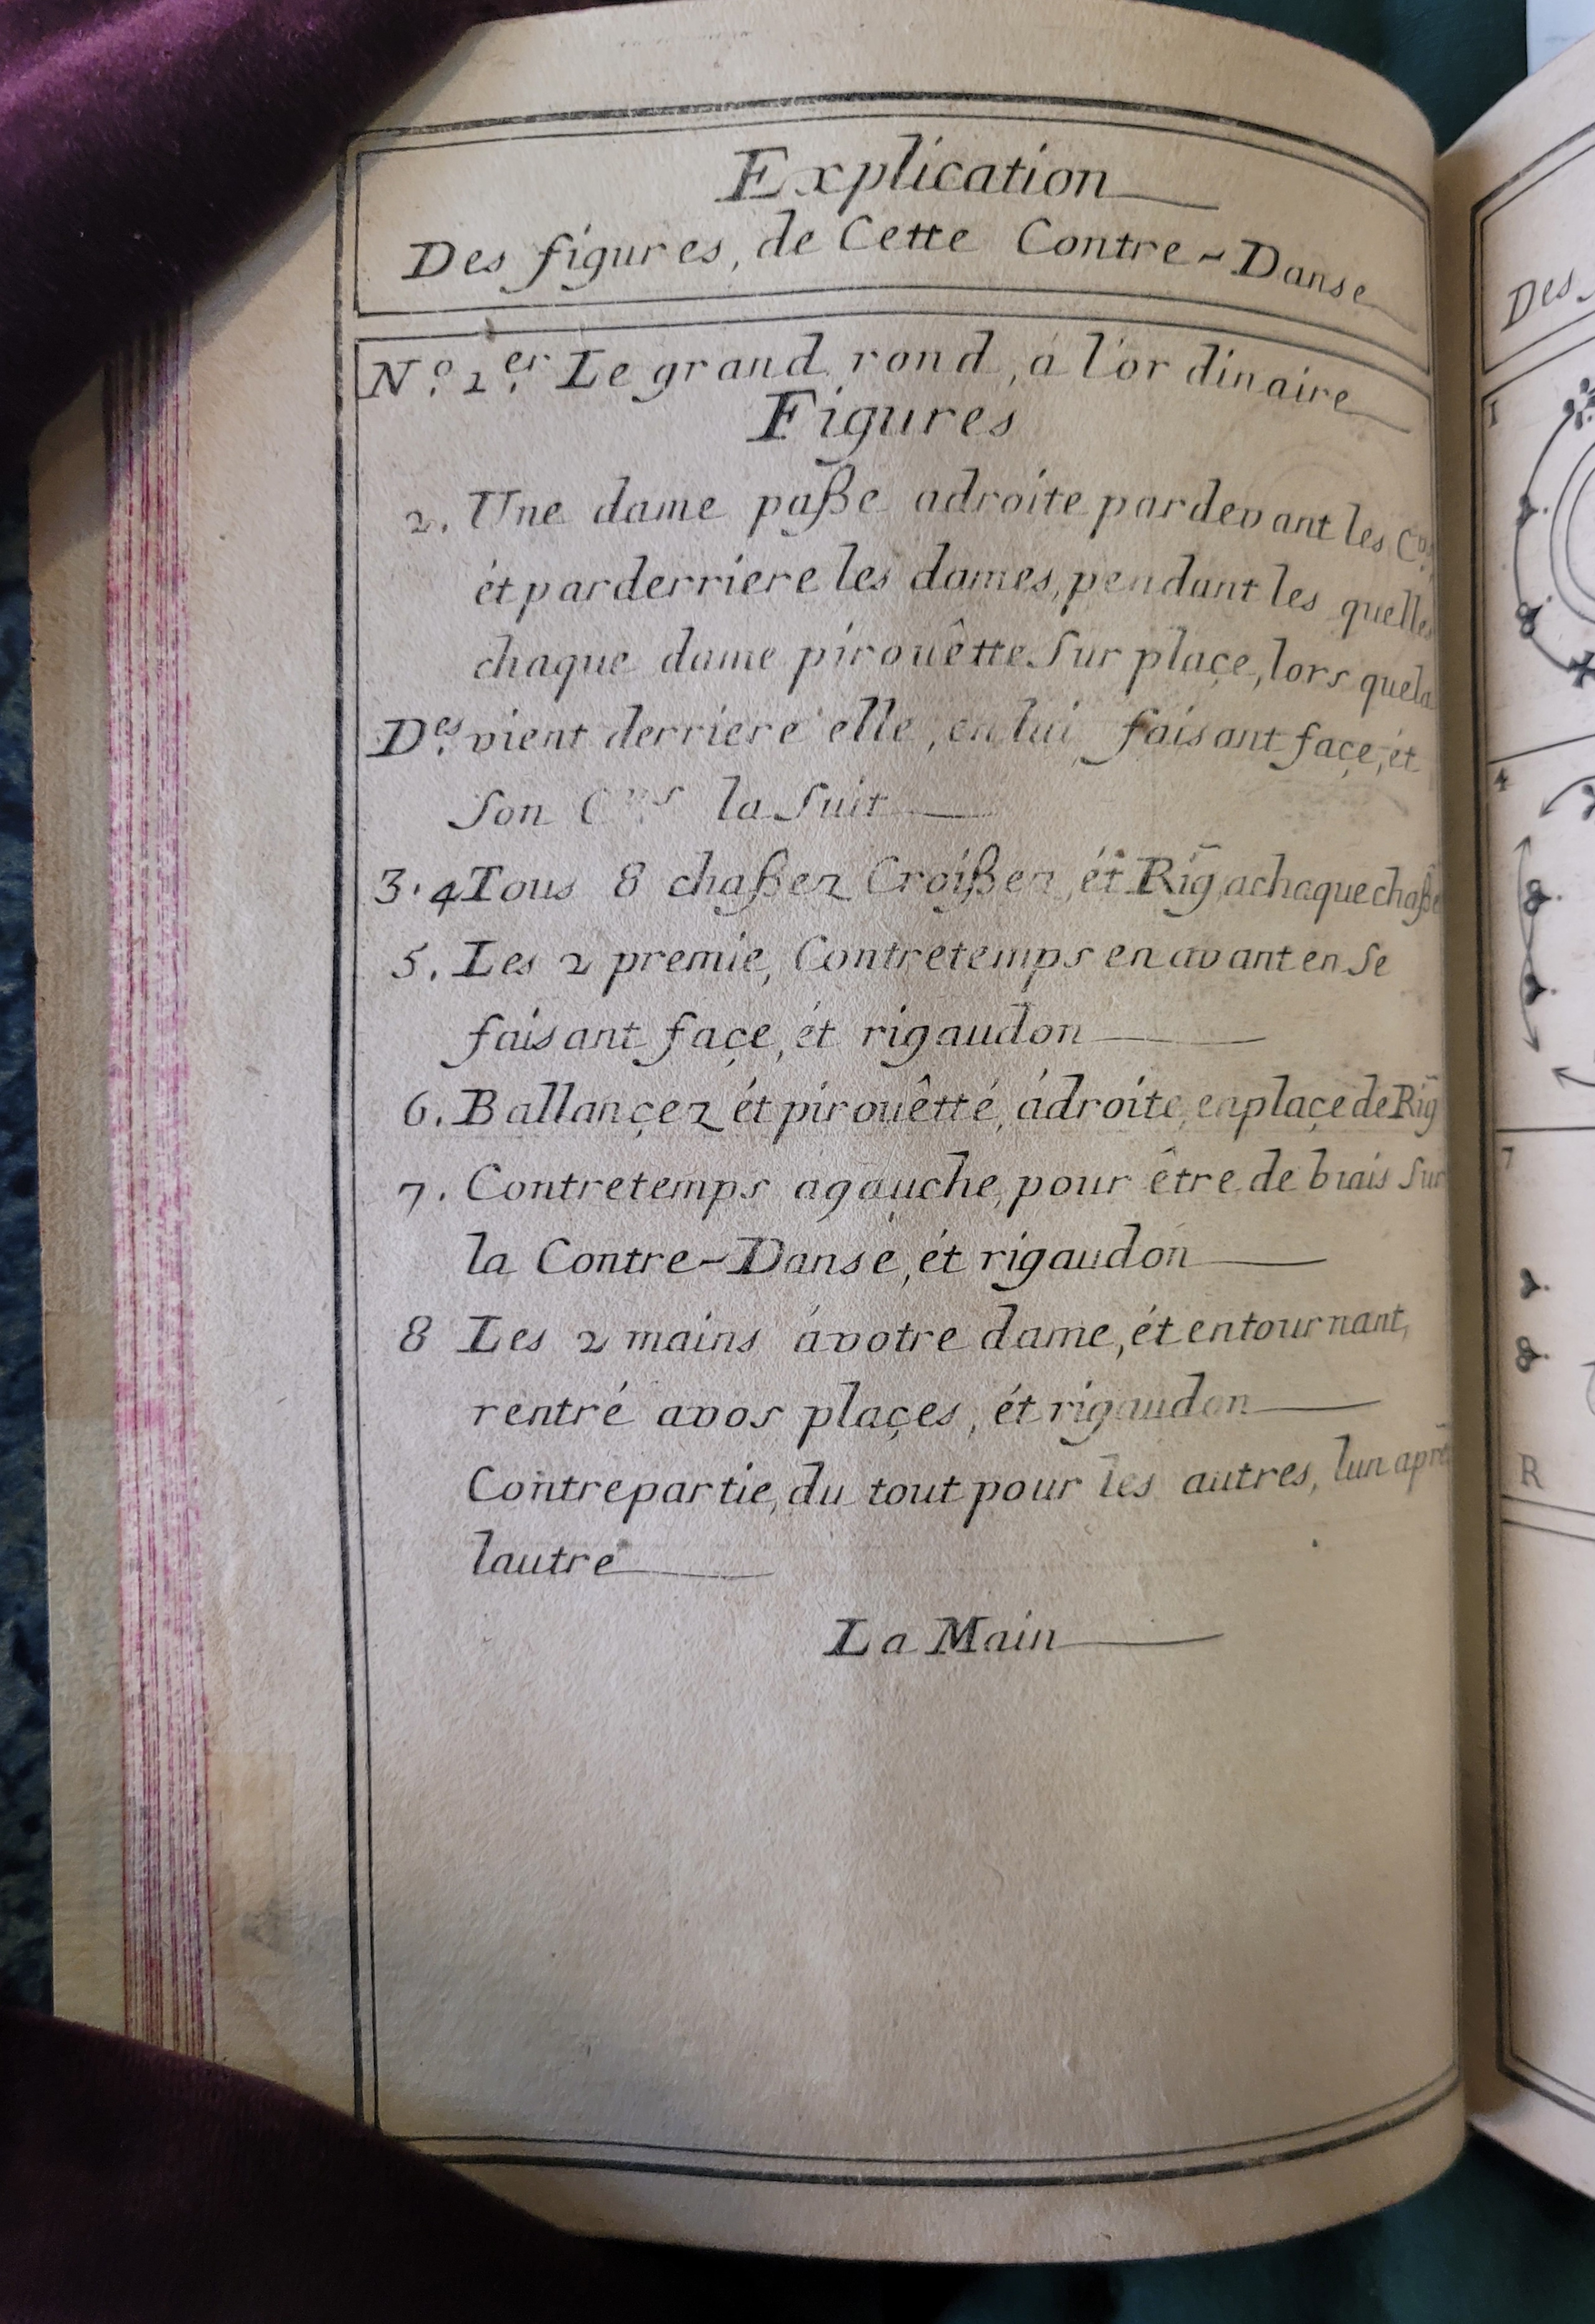 Explication
Des figures, de Cette Contre-Danse
N.o 1.er Le grand rond, á l'ordinaire
Figures
2. Une dame paße adroite pardevant les C.rs
ét parderriere les dames, pendant les quelles
chaque dame pirouêtte sur plaçe, lors quela
D.es vient derriere elle, en lui faisant façe, ét
son la suit
3.4 Tous 8 chaßez Croißez, ét Rig achaque chaßé
5. Les 2 premie, Contretemps en avant en se
faisant façe, ét rigaudon
6. Ballançez ét pirouêtté, ádroite, enplaçe de Rig
7. Contretemps agauche, pour être de biais sur
la Contre-Danse, ét rigaudon
8 Les 2 mains ávotre dame, ét entournant,
rentré avos plaçes, ét rigaudon
Contrepartie, du tout pour les autres, lun aprés
lautre
La Main
Des
1
4
7
R